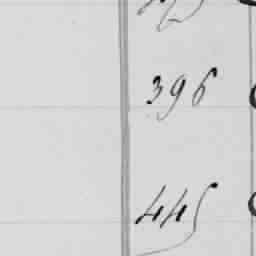 396
445